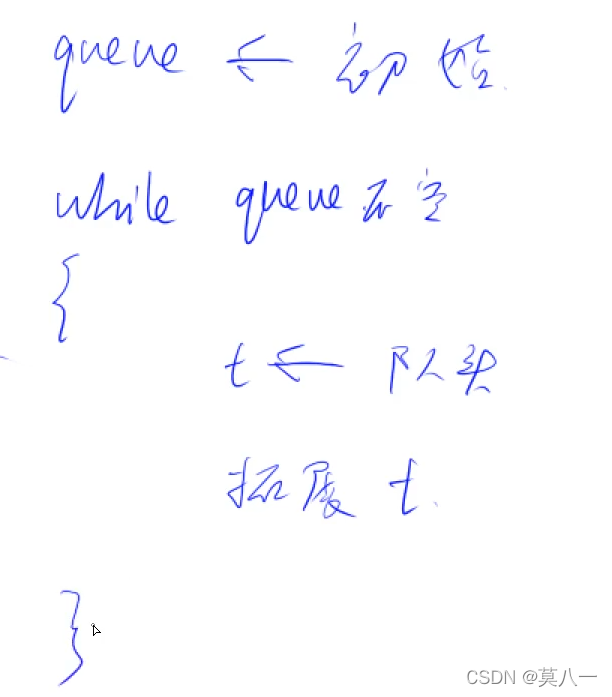 queue ← 初始
while queue不空
{
t ← 队头
拓展 t.
}
CSDN @莫八一